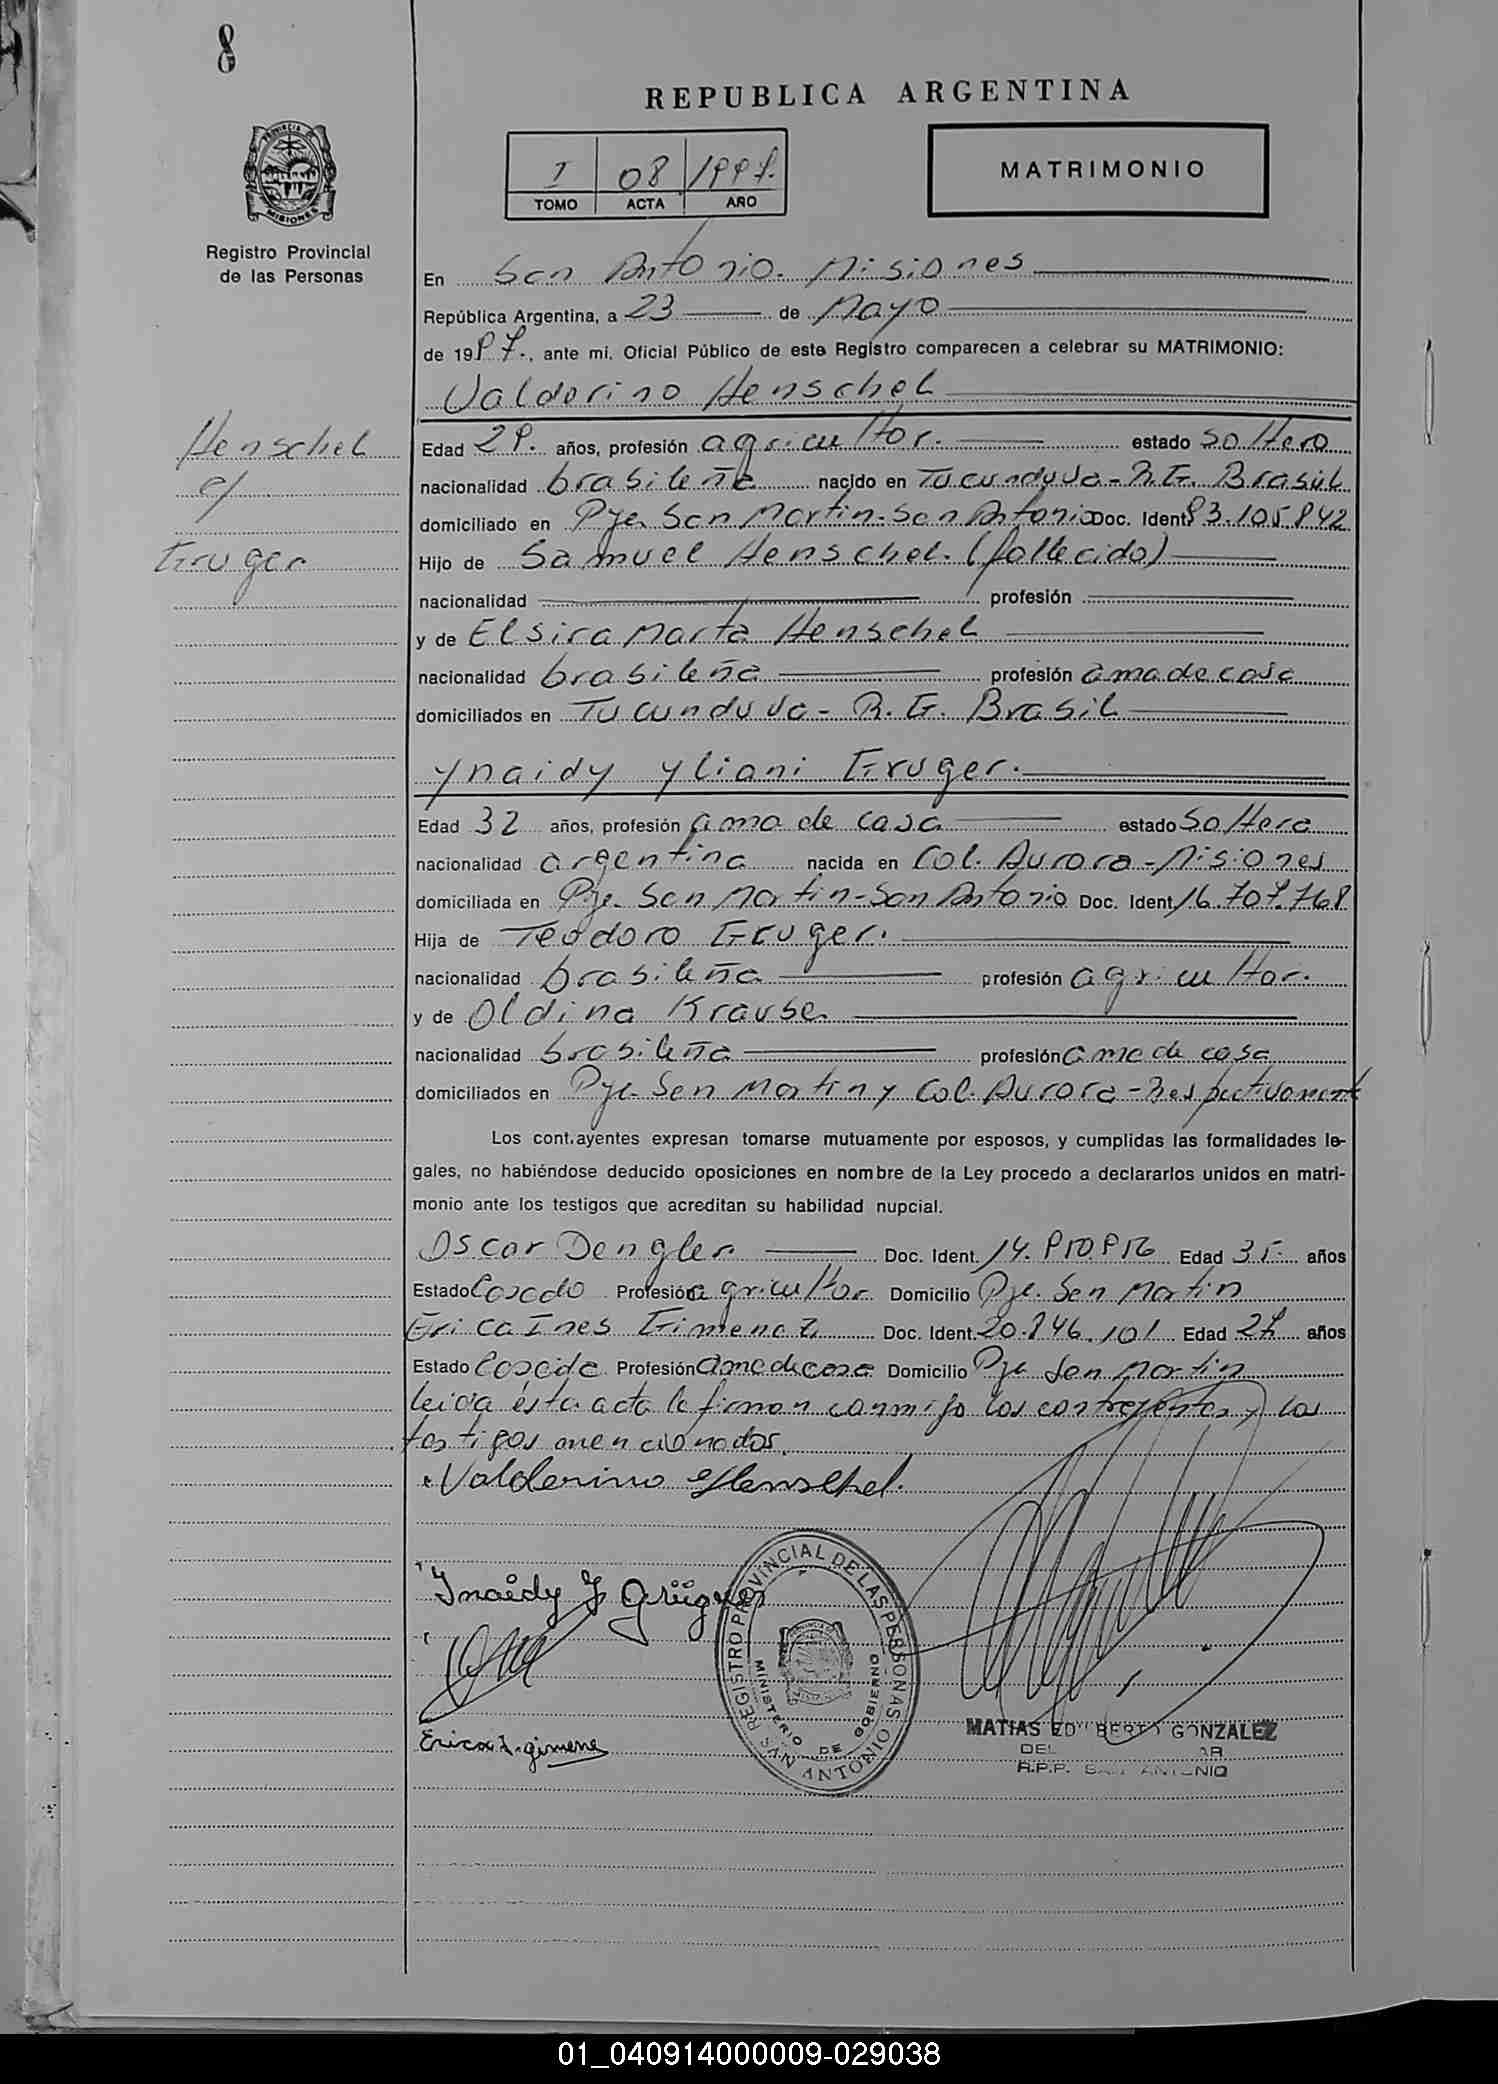 8
REPUBLICA ARGENTINA
I 08 1997.
TOMO ACTA AÑO
MATRIMONIO
PROVINCIA DE MISIONES
Registro Provincial
de las Personas
En San Antonio. Misiones
República Argentina, a 23 de Mayo
de 1997., ante mi, Oficial Público de este Registro comparecen a celebrar su MATRIMONIO:
Valderino Henschel
Henschel
c/
Gruger
Edad 29. años, profesión agricultor. estado soltero
nacionalidad brasileña nacido en Tucunduva - R.G. Brasil
domiciliado en Pje. San Martin - San Antonio Doc. Ident 93.105.842
Hijo de Samuel Henschel. (fallecido)
nacionalidad profesión
y de Elsira Marta Henschel
nacionalidad brasileña profesión ama de casa
domiciliados en Tucunduva - R.G. Brasil
Ynaidy Yliani Gruger.
Edad 32 años, profesión ama de casa estado Soltera
nacionalidad argentina nacida en Col. Aurora - Misiones
domiciliada en Pje. San Martin - San Antonio Doc. Ident 16.707.768
Hija de Teodoro Gruger.
nacionalidad brasileña profesión agricultor.
y de Oldina Krause
nacionalidad brasileña profesión ama de casa
domiciliados en Pje. San Martin y Col. Aurora - Respectivamente
Los contrayentes expresan tomarse mutuamente por esposos, y cumplidas las formalidades le-
gales, no habiéndose deducido oposiciones en nombre de la Ley procedo a declararlos unidos en matri-
monio ante los testigos que acreditan su habilidad nupcial.
Oscar Dengler Doc. Ident. 14. Edad 35. años
Estado Casado Profesión agricultor Domicilio Pje. San Martin
Erica Ines Gimenez Doc. Ident. 20.846.101 Edad años
Estado Casada Profesión ama de casa Domicilio Pje San Martin
leida ésta acta la firman conmigo los contrayentes y los
testigos mencionados.
Valderino Henschel.
Ynaidy Y Grüger
Erica I. gimene
REGISTRO PROVINCIAL DE LAS PERSONAS
MINISTERIO DE GOBIERNO
SAN ANTONIO
MATIAS ED BERTO GONZALEZ
DEL AR
R.P.P. SAN ANTONIO
01_040914000009-029038